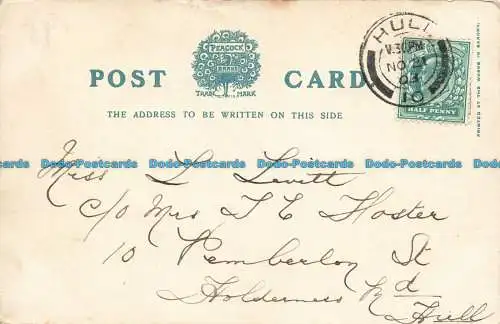 PEACOCK
BRAND
TRADE MARK
POST CARD
THE ADDRESS TO BE WRITTEN ON THIS SIDE
HULL
NO 21
03
HALF PENNY
PRINTED AT THE WORKS IN SAXONY.
Dodo-Postcards Dodo-Postcards Dodo-Postcards Dodo-Postcards Dodo-Postcards
Miss L Levitt
c/o Mrs T E Hoster
10 Pemberton St
Holderness Rd
Hull